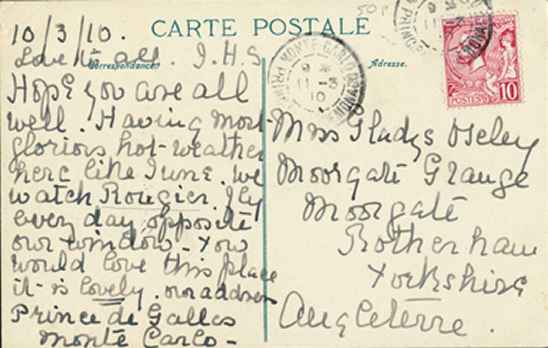 CARTE POSTALE
Correspondance
Adresse.
50P
10/3/10.
Love to all. I.H.S
Hope you are all
well. Having most
glorious hot-weather
here like June. We
watch Rougier fly
every day opposite
our window. You
would love this place
it is lovely. our address
Prince de Galles
Monte Carlo -
Miss Gladys Oxley
Moorgate Grange
Moorgate
Rotherham
Yorkshire
Angleterre.
MONTE CARLO
POSTES
10